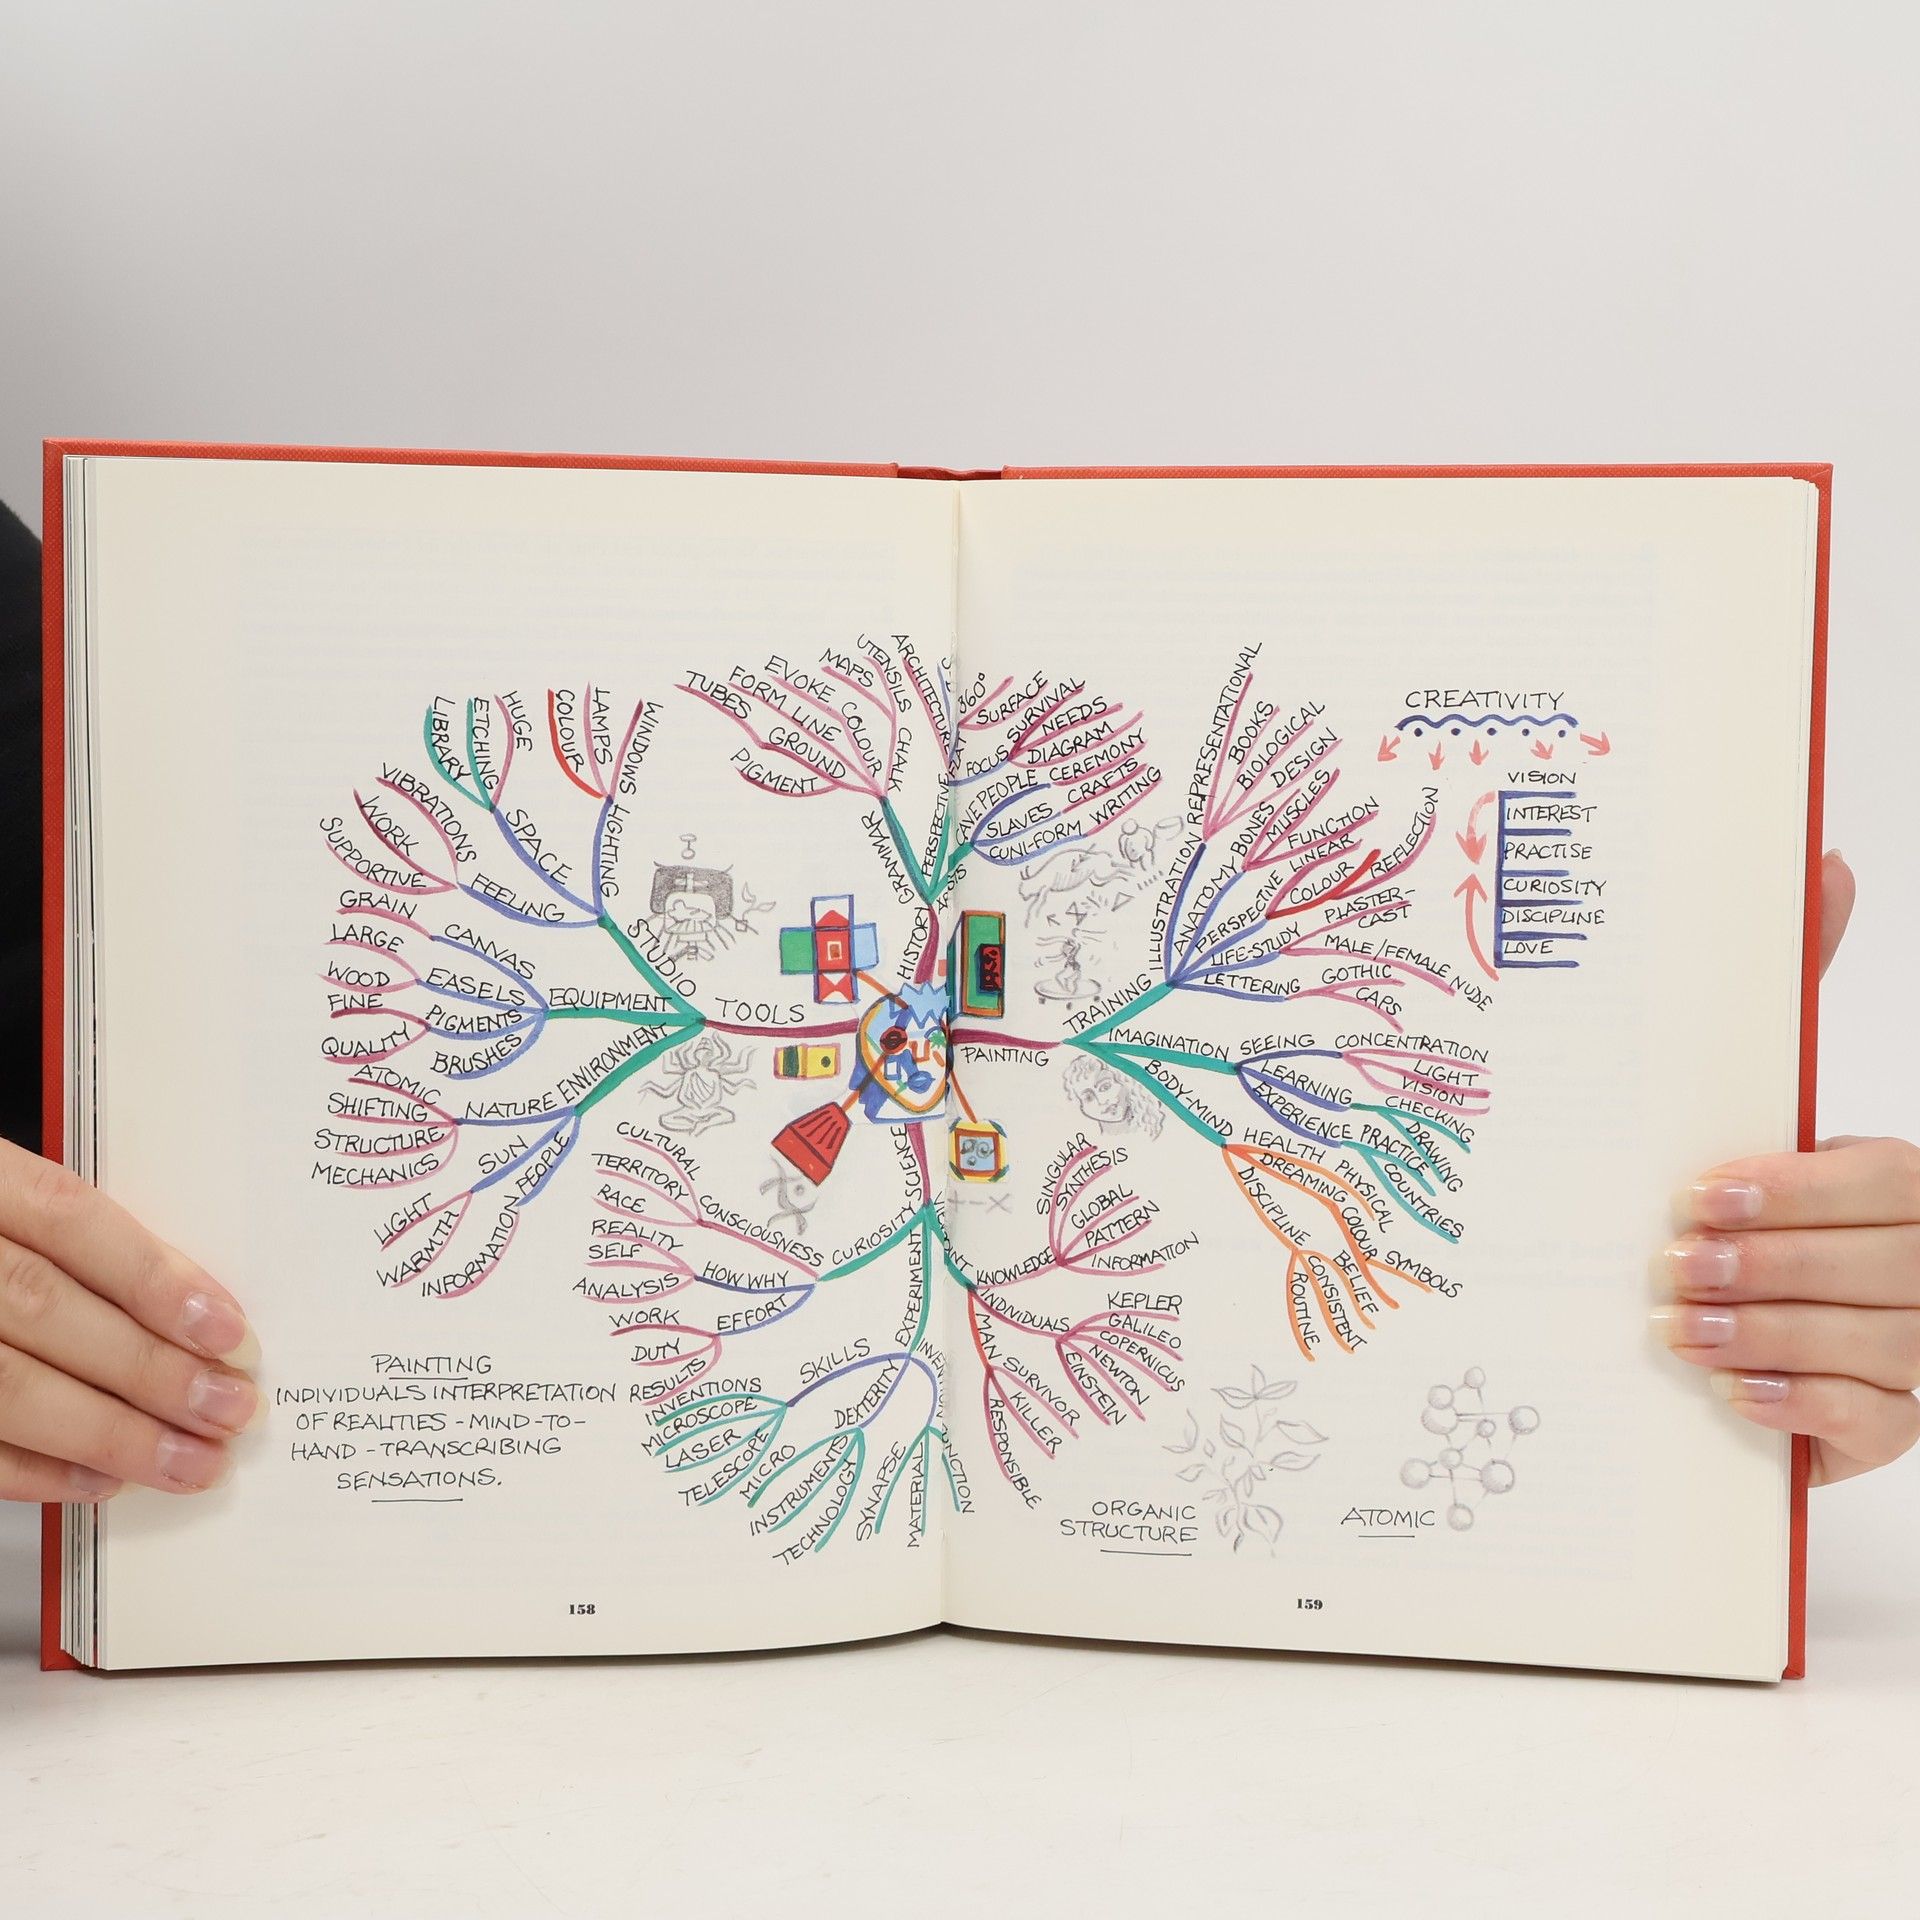 TOOLS
STUDIO
LIGHTING
WINDOWS
LAMPS
COLOUR
SPACE
HUGE
ETCHING
LIBRARY
FEELING
VIBRATIONS
WORK
SUPPORTIVE
EQUIPMENT
CANVAS
GRAIN
LARGE
EASELS
WOOD
FINE
PIGMENTS
QUALITY
BRUSHES
ENVIRONMENT
NATURE
ATOMIC
SHIFTING
STRUCTURE
MECHANICS
SUN
LIGHT
WARMTH
PEOPLE
INFORMATION
HISTORY
GRAMMAR
TUBES
FORM LINE
EVOKE COLOUR
MAPS
UTENSILS
CHALK
ARCHITECTURE
GROUND
PIGMENT
PERSPECTIVE
360°
SURFACE
FOCUS
SURVIVAL
NEEDS
DIAGRAM
CAVE PEOPLE
CEREMONY
SLAVES
CRAFTS
CUNI-FORM
WRITING
PAINTING
TRAINING
ILLUSTRATION
REPRESENTATIONAL
BOOKS
BIOLOGICAL
DESIGN
ANATOMY
BONES
MUSCLES
FUNCTION
PERSPECTIVE
LINEAR
COLOUR
REFLECTION
LIFE-STUDY
PLASTER-
CAST
MALE/FEMALE NUDE
LETTERING
GOTHIC
CAPS
IMAGINATION
SEEING
CONCENTRATION
LIGHT
VISION
LEARNING
CHECKING
DRAWING
EXPERIENCE
PRACTICE
COUNTRIES
BODY-MIND
HEALTH
PHYSICAL
DREAMING
COLOUR
SYMBOLS
DISCIPLINE
BELIEF
CONSISTENT
ROUTINE
CREATIVITY
VISION
INTEREST
PRACTISE
CURIOSITY
DISCIPLINE
LOVE
SCIENCE
CURIOSITY
CONSCIOUSNESS
CULTURAL
TERRITORY
RACE
HOW WHY
REALITY
SELF
ANALYSIS
EFFORT
WORK
DUTY
RESULTS
EXPERIMENT
SKILLS
INVENTIONS
MICROSCOPE
LASER
TELESCOPE
DEXTERITY
MICRO
INSTRUMENTS
TECHNOLOGY
SYNAPSE
MATERIAL
KNOWLEDGE
SINGULAR
SYNTHESIS
GLOBAL
PATTERN
INFORMATION
INDIVIDUALS
KEPLER
GALILEO
COPERNICUS
NEWTON
EINSTEIN
MAN
SURVIVOR
KILLER
RESPONSIBLE
PAINTING
INDIVIDUALS INTERPRETATION
OF REALITIES - MIND-TO-
HAND - TRANSCRIBING
SENSATIONS.
ORGANIC
STRUCTURE
ATOMIC
158
159